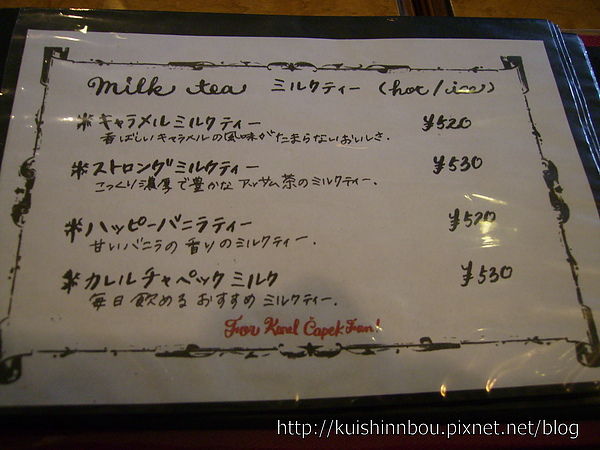 milk tea ミルクティー (hot/ice)
※キャラメルミルクティー ¥520
香ばしいキャラメルの風味がたまらないおいしさ.
※ストロングミルクティー ¥530
こっくり濃厚で豊かなアッサム茶のミルクティー.
※ハッピーバニラティー ¥520
甘いバニラの香りのミルクティー.
※カレルチャペックミルク ¥530
毎日飲めるおすすめミルクティー.
For Karel Čapek Fan!
http://kuishinnbou.pixnet.net/blog